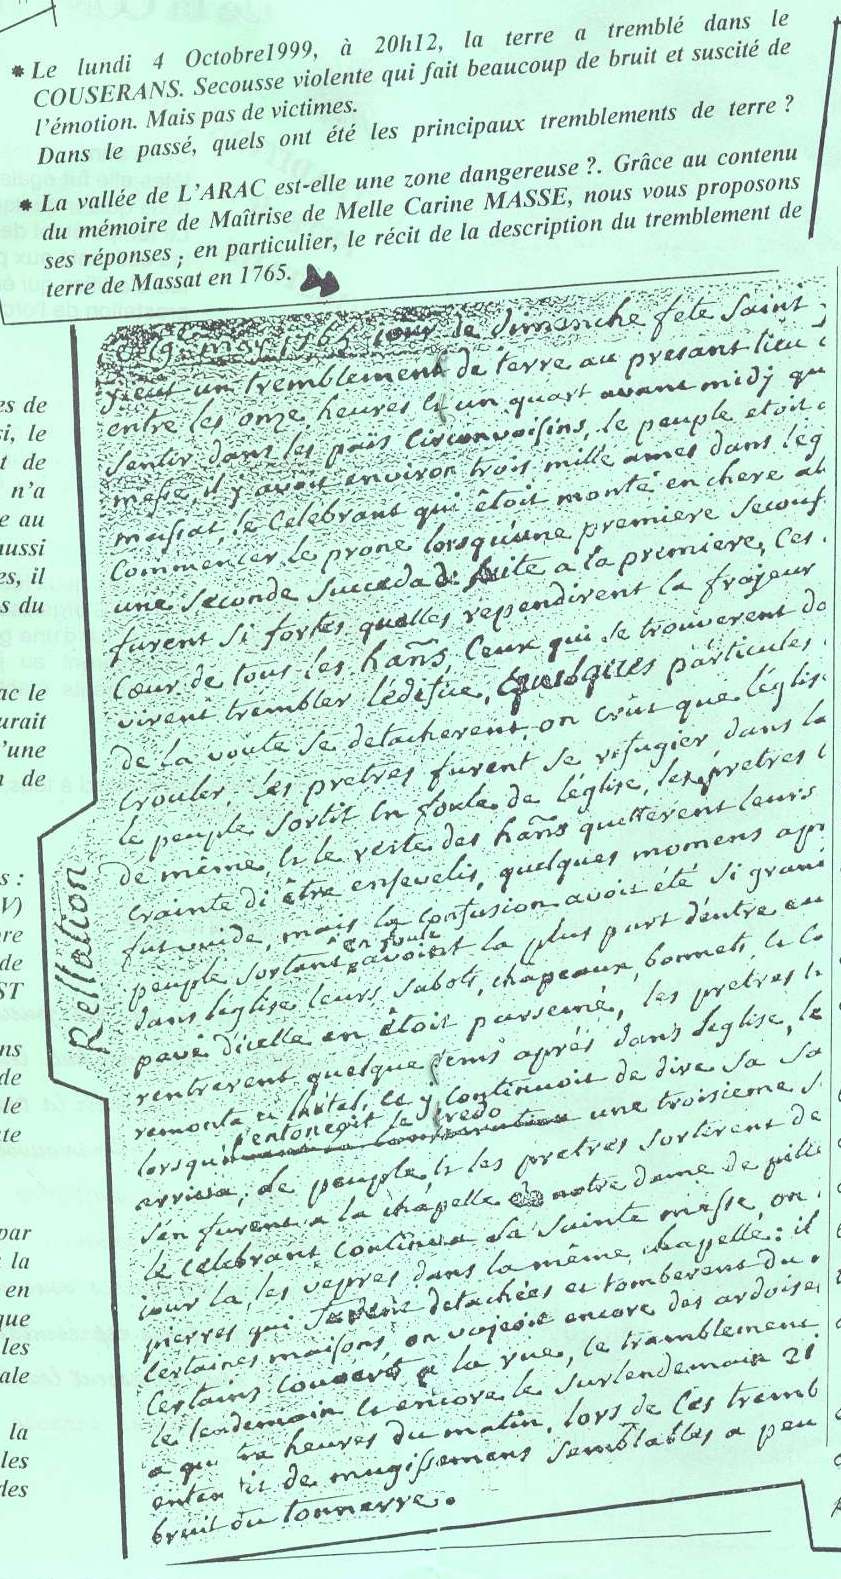 * Le lundi 4 Octobre1999, à 20h12, la terre a tremblé dans le
COUSERANS. Secousse violente qui fait beaucoup de bruit et suscité de
l'émotion. Mais pas de victimes.
Dans le passé, quels ont été les principaux tremblements de terre ?
* La vallée de L'ARAC est-elle une zone dangereuse ?. Grâce au contenu
du mémoire de Maîtrise de Melle Carine MASSE, nous vous proposons
ses réponses ; en particulier, le récit de la description du tremblement de
terre de Massat en 1765.
may 1765 jour de dimanche fete saint
un tremblement de terre au presant lieu
entre les onze heures et un quart avant midy qu
sentir dans les païs circonvoisins, le peuple etoit
messe, il y avoit environ trois mille ames dans leg
massat, le celebrant qui êtoit monté en chere
commencer le prone lorsqu'une premiere secous
une seconde succeda de suite a la premiere, ces
furent si fortes quelles rependirent la frajeur
cœur de tous les hañs, ceux qui se trouverent
virent trembler lédifice, quelques particules
de la voute se detacherent, on crût que léglis
crouler, les pretres furent se refugier dans la
le peuple sortit en foule de léglise, les pretres
de même, et le reste des hañs quitterent leurs
crainte di être ensevelis, quelques momens apr
fut vuide, mais la confusion avoit été si grand
en foule
peuple sortant avoient la plus part dentre eu
dans leglise leurs sabots, chapeaux, bonnets, et
pavé dicelle en êtoit parsemé, les pretres
rentrerent quelque tems aprés dans leglise, le
remonta a lautel, et y continuoit de dire sa
entonçoit le credo
lorsqu une troisieme
arriva, le peuple et les pretres sortirent de
s'en furent a la chapelle notre dame de
le celebrant continua sa sainte messe, on
jour la, les vepres dans la même chapelle: il
pierres qui detachées et tomberent du
certaines maisons, on vojoit encore des ardoises
certains a la rue, le tramblement
le lendemain et encore le surlendemain 21
a heures du matin, lors de ces tremb
de mugissemens semblables a peu
bruit du tonnerre.
Rellation
es de
si, le
t de
n'a
e au
aussi
es, il
s du
ac le
urait
'une
n de
s :
V)
re
de
ST
ns
de
le
te
par
la
en
que
les
ale
la
les
des